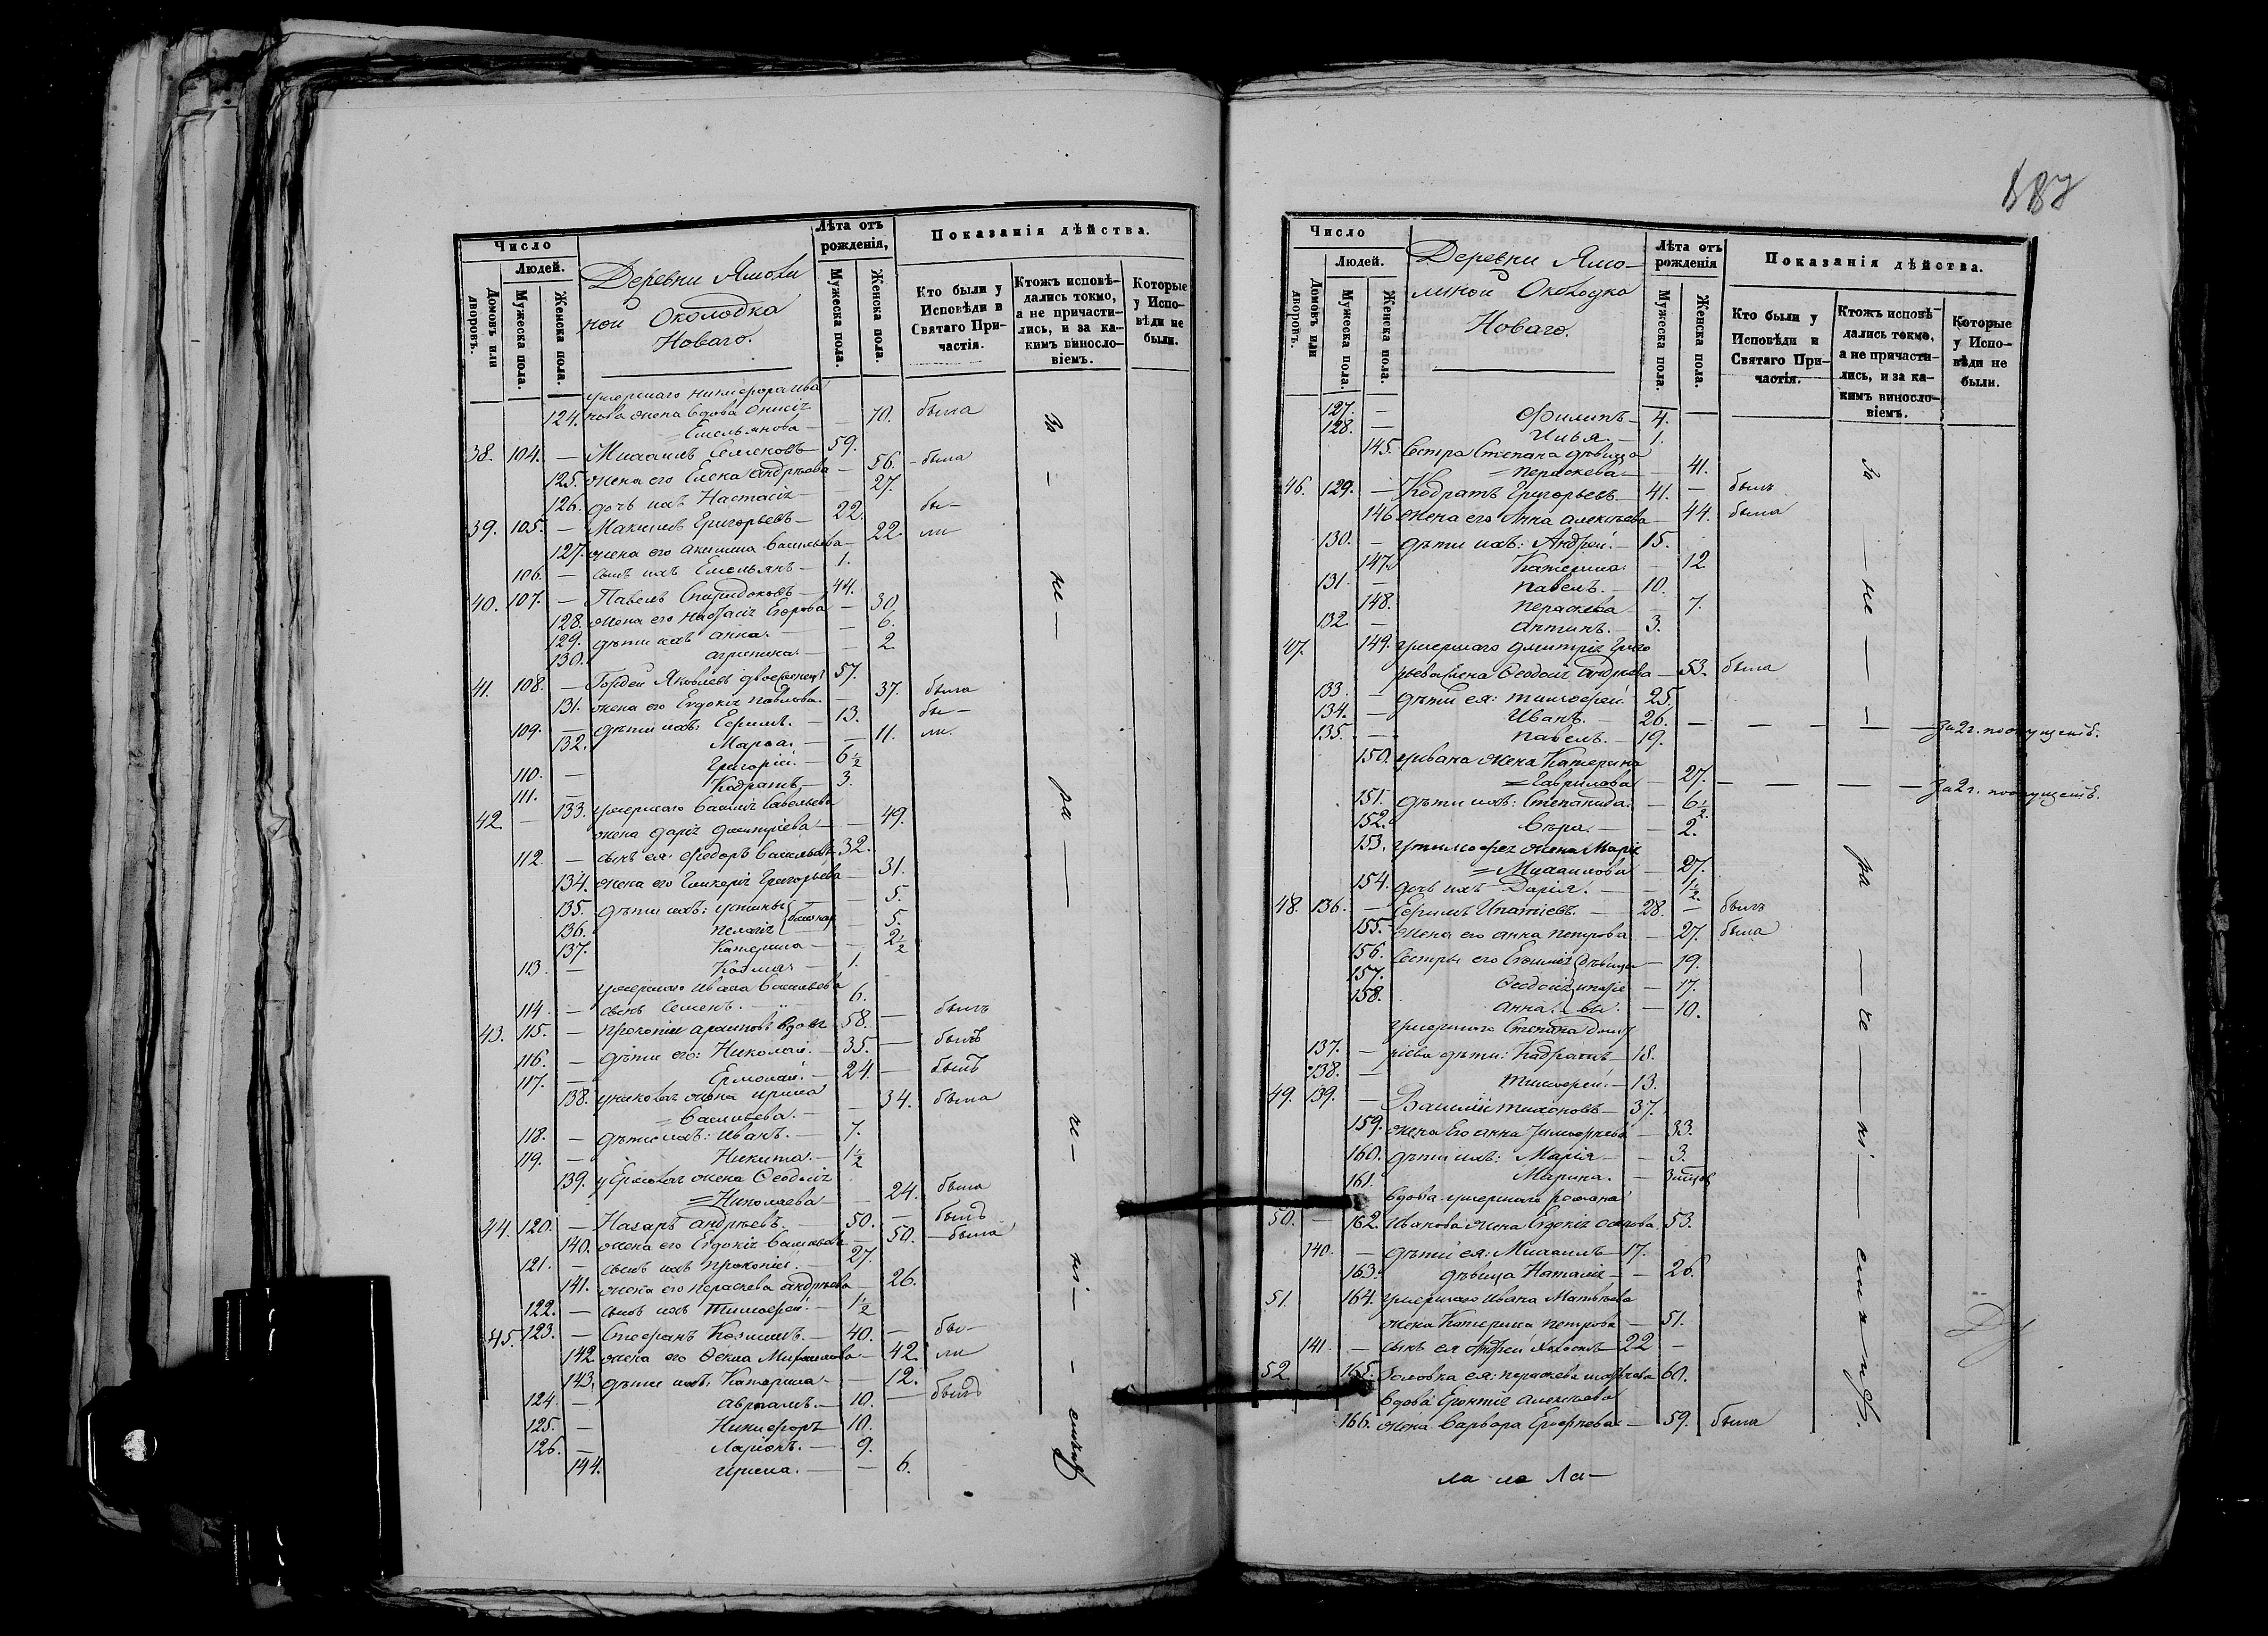 Число
Людей.
Домовъ или дворовъ.
Мужеска пола.
Женска пола.
Деревни Ямоли
ной Околодка
Новаго.
Лѣта отъ рожденія,
Мужеска пола.
Женска пола.
Показанія дѣйства.
Кто были у Исповѣди и Святаго При-частія.
Ктожъ исповѣ-дались токмо, а не причасти-лись, и за ка-кимъ винословіемъ.
Которые у Испо-вѣди не были.
умершаго Никифора Ива
124. нова жена вдова Анисія 70. была
= Емельянова —
38. 104. — Михаилъ Семеновъ — 59.
125. жена его Елена Андрѣева — 56. — была
126. дочь ихъ Настасія — 27.
39. 105. — Максимъ Григорьевъ — 22. бы-
127. жена его Акилина Васильева — 22. ли
106. — сынъ ихъ Емельянъ — 1.
40. 107. — Павелъ Спиридоновъ — 44.
128. жена его Настасія Егорова — 30.
129. дѣти ихъ Анна. — 6.
130. Агрипина. — 2.
41. 108. — Гордей Яковлевъ двоеженецъ 57.
131. жена его Евдокія Павлова. — 37. была
109. — дѣти ихъ: Ефимъ. — 13. бы-
132. Марфа. — 11. ли.
110. — Григорій. — 6½
111. — Кодратъ — 3.
42. — 133. умершаго Василія Савельева
жена Дарія Дмитріева — 49.
112. — сынъ ея: Федоръ Васильевъ 32.
134. жена его Гликерія Григорьева — 31.
135. дѣти ихъ: Устинья — 5.
136. Пелагія — 5.
137. Катерина — 2½
113. — Козма — 1.
умершаго Ивана Васильева
114. — сынъ Семенъ. — 6.
43. 115. — Прокопій Архиповъ вдовъ 58. — былъ
116. — дѣти его: Николай. — 35. — былъ
117. — Ермолай. — 24. — былъ
138. у Николая жена Ирина
= Васильева. — 34. была
118. — дѣти ихъ: Иванъ. — 7.
119. — Никита. — 1½
139. у Ермолая жена Феодосія
= Николаева — 24. была
44. 120. — Назаръ Андрѣевъ. — 50. — былъ
140. жена его Евдокія Васильева — 50. — была
121. — сынъ ихъ Прокопій. — 27.
141. жена его Пераскева Андрѣева — 26.
122. — сынъ ихъ Тимофей. — 1½
45. 123. — Стефанъ Козминъ. — 40. — бы-
142. жена его Фекла Михаилова — 42. ли
143. дѣти ихъ: Катерина. — 12.
124. — Авраамъ. — 10. — былъ
125. — Никифоръ 10.
126. — Ларіонъ. — 9.
144. Ирина. — 6.
За — не — ра — че — ні — емъ
Число
Людей.
Домовъ или дворовъ.
Мужеска пола.
Женска пола.
Деревни Ямо-
линой Околодка
Новаго.
Лѣта отъ рожденія
Мужеска пола.
Женска пола.
Показанія дѣйства.
Кто были у Исповѣди и Святаго При-частія.
Ктожъ исповѣ-дались токмо, а не причасти-лись, и за ка-кимъ винословіемъ.
Которые у Испо-вѣди не были.
127. — Филипъ — 4.
128. — Илья. — 1.
145. Сестра Степана дѣвица
= Пераскева — 41.
46. 129. — Кодратъ Григорьевъ — 41. — былъ
146. жена его Анна Алексѣева — 44. была
130. — дѣти ихъ: Андрей. — 15.
147. Катерина. — 12
131. — Павелъ. — 10.
148. Пераскева — 7.
132. — Антипъ. — 3.
47. 149. умершаго Дмитрія Григо
рьева жена Феодосія Андрѣева — 53. была
133. — дѣти ея: Тимофей. 25.
134. — Иванъ. — 26. — — — — — за 2 г. по опущенію.
135. — Павелъ. — 19.
150. у Ивана жена Катерина
= Гаврилова — 27. — — — — за 2 г. по опущенію.
151. дѣти ихъ: Степанида. — 6½
152. Вѣра. — 2.
153. у Тимофея жена Марія
= Михаилова — 27.
154. дочь ихъ Дарія. — 1½
48. 136. — Ефимъ Ипатіевъ. — 28. — былъ
155. жена его Анна Петрова — 27. была
156. Сестры его Евфимія дѣвица — 19.
157. Феодосія — 17.
158. Анна. — 10.
умершаго Степана Дмит
137. — ріева дѣти: Кадратъ — 18.
138. — Тимофей. — 13.
49. 139. — Василій Тихоновъ — 37.
159. жена его Анна Тимофеева — 33.
160. дѣти ихъ: Марія — 3.
161. Марина. —
вдова умершаго Романа
50. — 162. Иванова жена Евдокія Осипова 53.
140. — дѣти ея: Михаилъ — 17.
163. дѣвица Наталія — 26.
51. 164. умершаго Ивана Матвѣева
жена Катерина Петрова — 51.
141. — сынъ ея Андрей холостъ 22 —
52. 165. Золовка ея: Пераскева 60.
вдова Алексѣева
166. жена Варвара Ерофѣева. — 59. была
За — не — ра — че — ні — емъ.
ла ла ла —